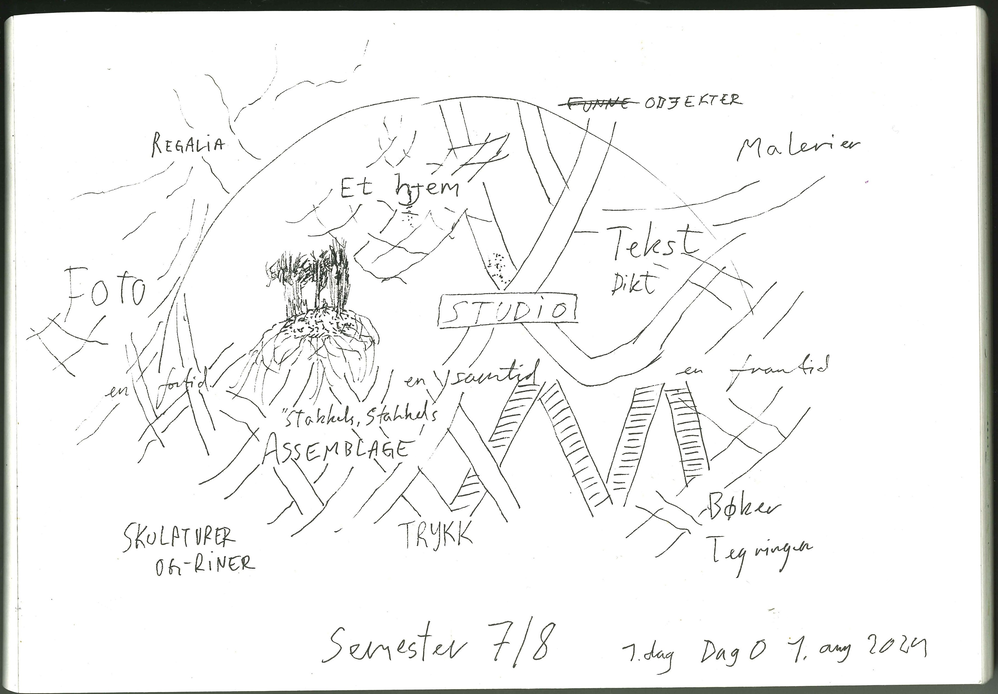 FUNNE OBJEKTER
REGALIA
Malerier
Et hjem
Tekst
Dikt
FOTO
STUDIO
en fortid
en samtid
en framtid
"Stakkels, Stakkels
ASSEMBLAGE
SKULPTURER
OG-RINER
TRYKK
Bøker
Tegninger
Semester 7/8
1.dag Dag 0 1. aug 2024